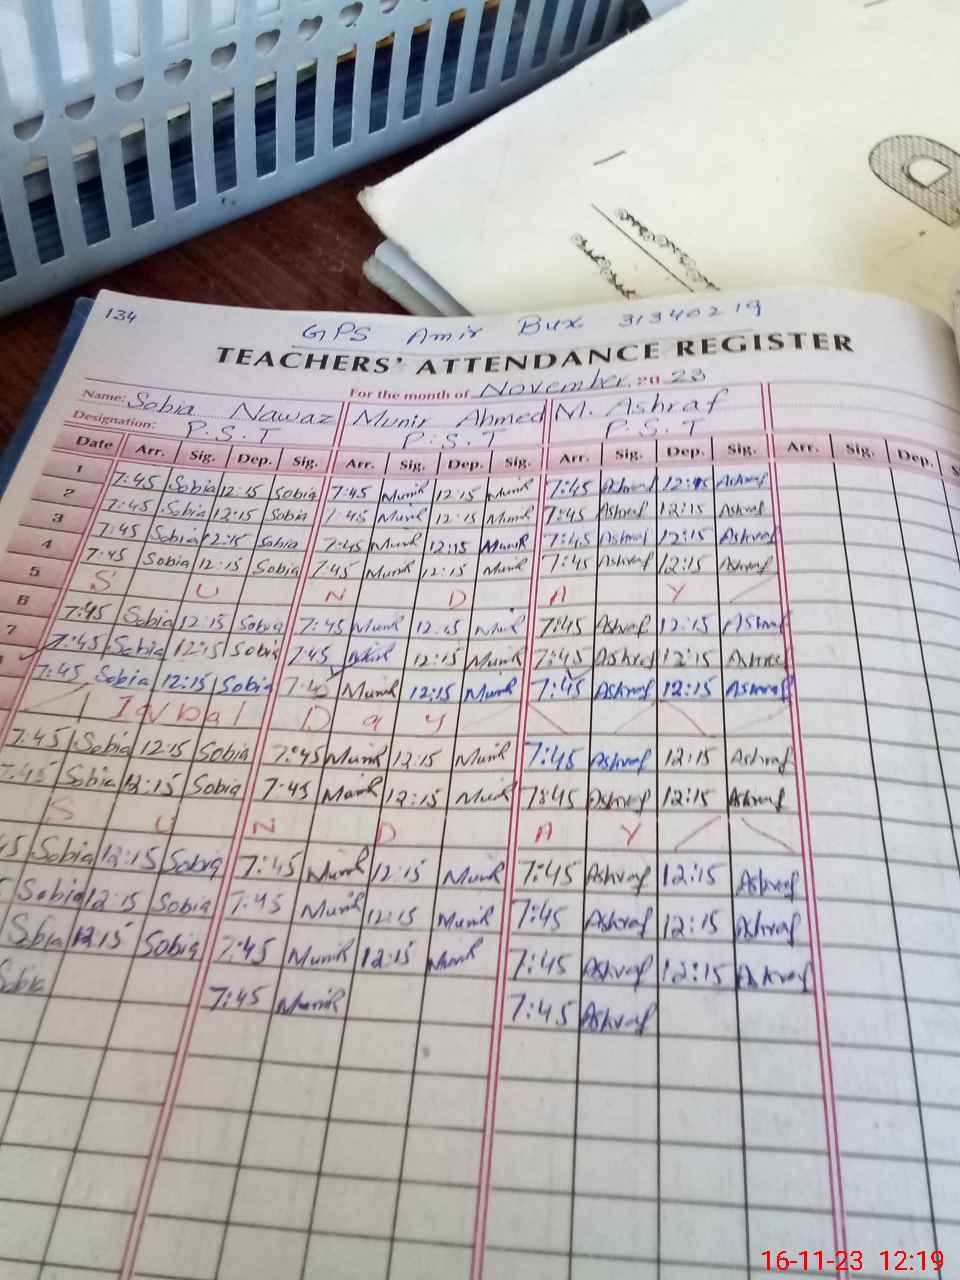 134
GPS Amir Bux 31340219
TEACHERS' ATTENDANCE REGISTER
For the month of November 2023
Name: Sobia Nawaz Munir Ahmed M. Ashraf
Designation: P.S.T P.S.T P.S.T
Date Arr. Sig. Dep. Sig. Arr. Sig. Dep. Sig. Arr. Sig. Dep. Sig. Arr. Sig. Dep. S
1 7:45 Sobia 12:15 Sobia 7:45 Munir 12:15 Munir 7:45 Ashraf 12:15 Ashraf
2 7:45 Sobia 12:15 Sobia 7:45 Munir 12:15 Munir 7:45 Ashraf 12:15 Ashraf
3 7:45 Sobia 12:15 Sobia 7:45 Munir 12:15 Munir 7:45 Ashraf 12:15 Ashraf
4 7:45 Sobia 12:15 Sobia 7:45 Munir 12:15 Munir 7:45 Ashraf 12:15 Ashraf
5 S U N D A Y
6 7:45 Sobia 12:15 Sobia 7:45 Munir 12:15 Munir 7:45 Ashraf 12:15 Ashraf
7 7:45 Sobia 12:15 Sobia 7:45 Munir 12:15 Munir 7:45 Ashraf 12:15 Ashraf
7:45 Sobia 12:15 Sobia 7:45 Munir 12:15 Munir 7:45 Ashraf 12:15 Ashraf
Iqbal Day
7:45 Sobia 12:15 Sobia 7:45 Munir 12:15 Munir 7:45 Ashraf 12:15 Ashraf
7:45 Sobia 12:15 Sobia 7:45 Munir 12:15 Munir 7:45 Ashraf 12:15 Ashraf
S U N D A Y
45 Sobia 12:15 Sobia 7:45 Munir 12:15 Munir 7:45 Ashraf 12:15 Ashraf
Sobia 12:15 Sobia 7:45 Munir 12:15 Munir 7:45 Ashraf 12:15 Ashraf
Sobia 12:15 Sobia 7:45 Munir 12:15 Munir 7:45 Ashraf 12:15 Ashraf
Sobia 7:45 Munir 7:45 Ashraf
16-11-23 12:19